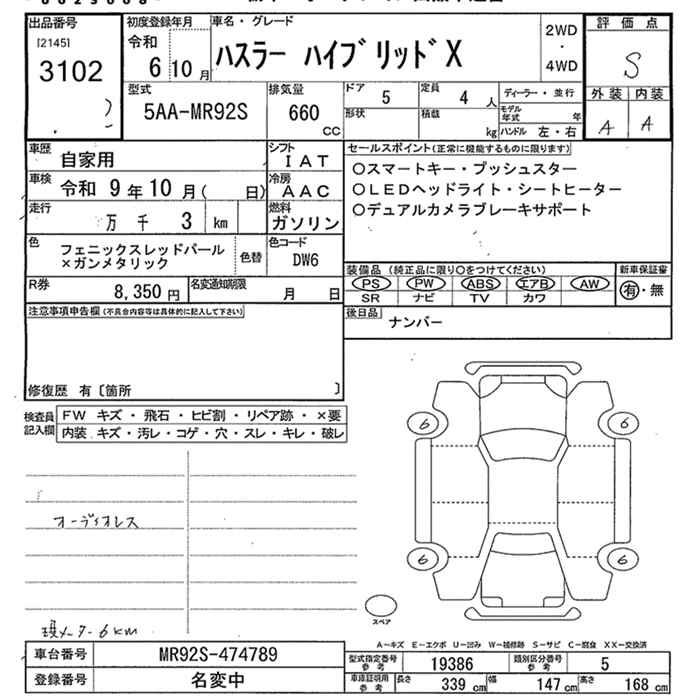 出品番号
[2145]
3102
初度登録年月
令和
6 10 月
車名・グレード
ハスラー ハイブリッド X
2WD
・
4WD
評価点
S
外装 内装
A A
型式
5AA-MR92S
排気量
660
CC
ドア
5
定員
4 人
形状
積載
kg
ディーラー・並行
モデル年式 年
ハンドル 左・右
車歴
自家用
シフト
IAT
車検
令和 9年10月( 日)
冷房
AAC
走行
万 千 3 km
燃料
ガソリン
色
フェニックスレッドパール
×ガンメタリック
色替
色コード
DW6
R券
8,350 円
名変通知期限
月 日
セールスポイント(正常に機能するものに限ります)
○スマートキー・プッシュスター
○LEDヘッドライト・シートヒーター
○デュアルカメラブレーキサポート
装備品(純正品に限り○をつけてください)
新車保証書
PS PW ABS エアB AW
SR ナビ TV カワ
有・無
注意事項申告欄(不具合内容等は具体的に記入して下さい)
後日品
ナンバー
修復歴 有〔箇所 〕
検査員記入欄
FW キズ・飛石・ヒビ割・リペア跡・×要
内装 キズ・汚レ・コゲ・穴・スレ・キレ・破レ
6 6
オーディオレス
6 6
スペア
現メーター6km
A-キズ E-エクボ U-凹み W-補修跡 S-サビ C-腐食 XX-交換済
車台番号
MR92S-474789
登録番号
名変中
型式指定番号
参考
19386
類別区分番号
参考
5
車庫証明用
参考
長さ 339 cm
幅 147 cm
高さ 168 cm